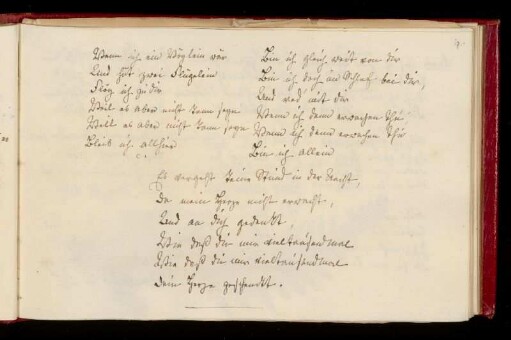 Wenn ich ein Vöglein wär
Und hät zwei Flügelein
Flög ich zu dir
Weil es aber nicht kann seyn
Weil es aber nicht kann seyn
Bleib ich allhier
Bin ich gleich weit von dir
Bin ich doch im Schlaf bei dir,
Und red mit dir
Wenn ich denn erwachen thu
Wenn ich denn erwachen thu
Bin ich allein
Es vergeht keine Stund in der Nacht,
Da mein Herze nicht erwacht,
Und an dich gedenkt,
Wie daß du mir vieltausendmal
Wie daß du mir vieltausendmal
Dein Herze geschenkt.